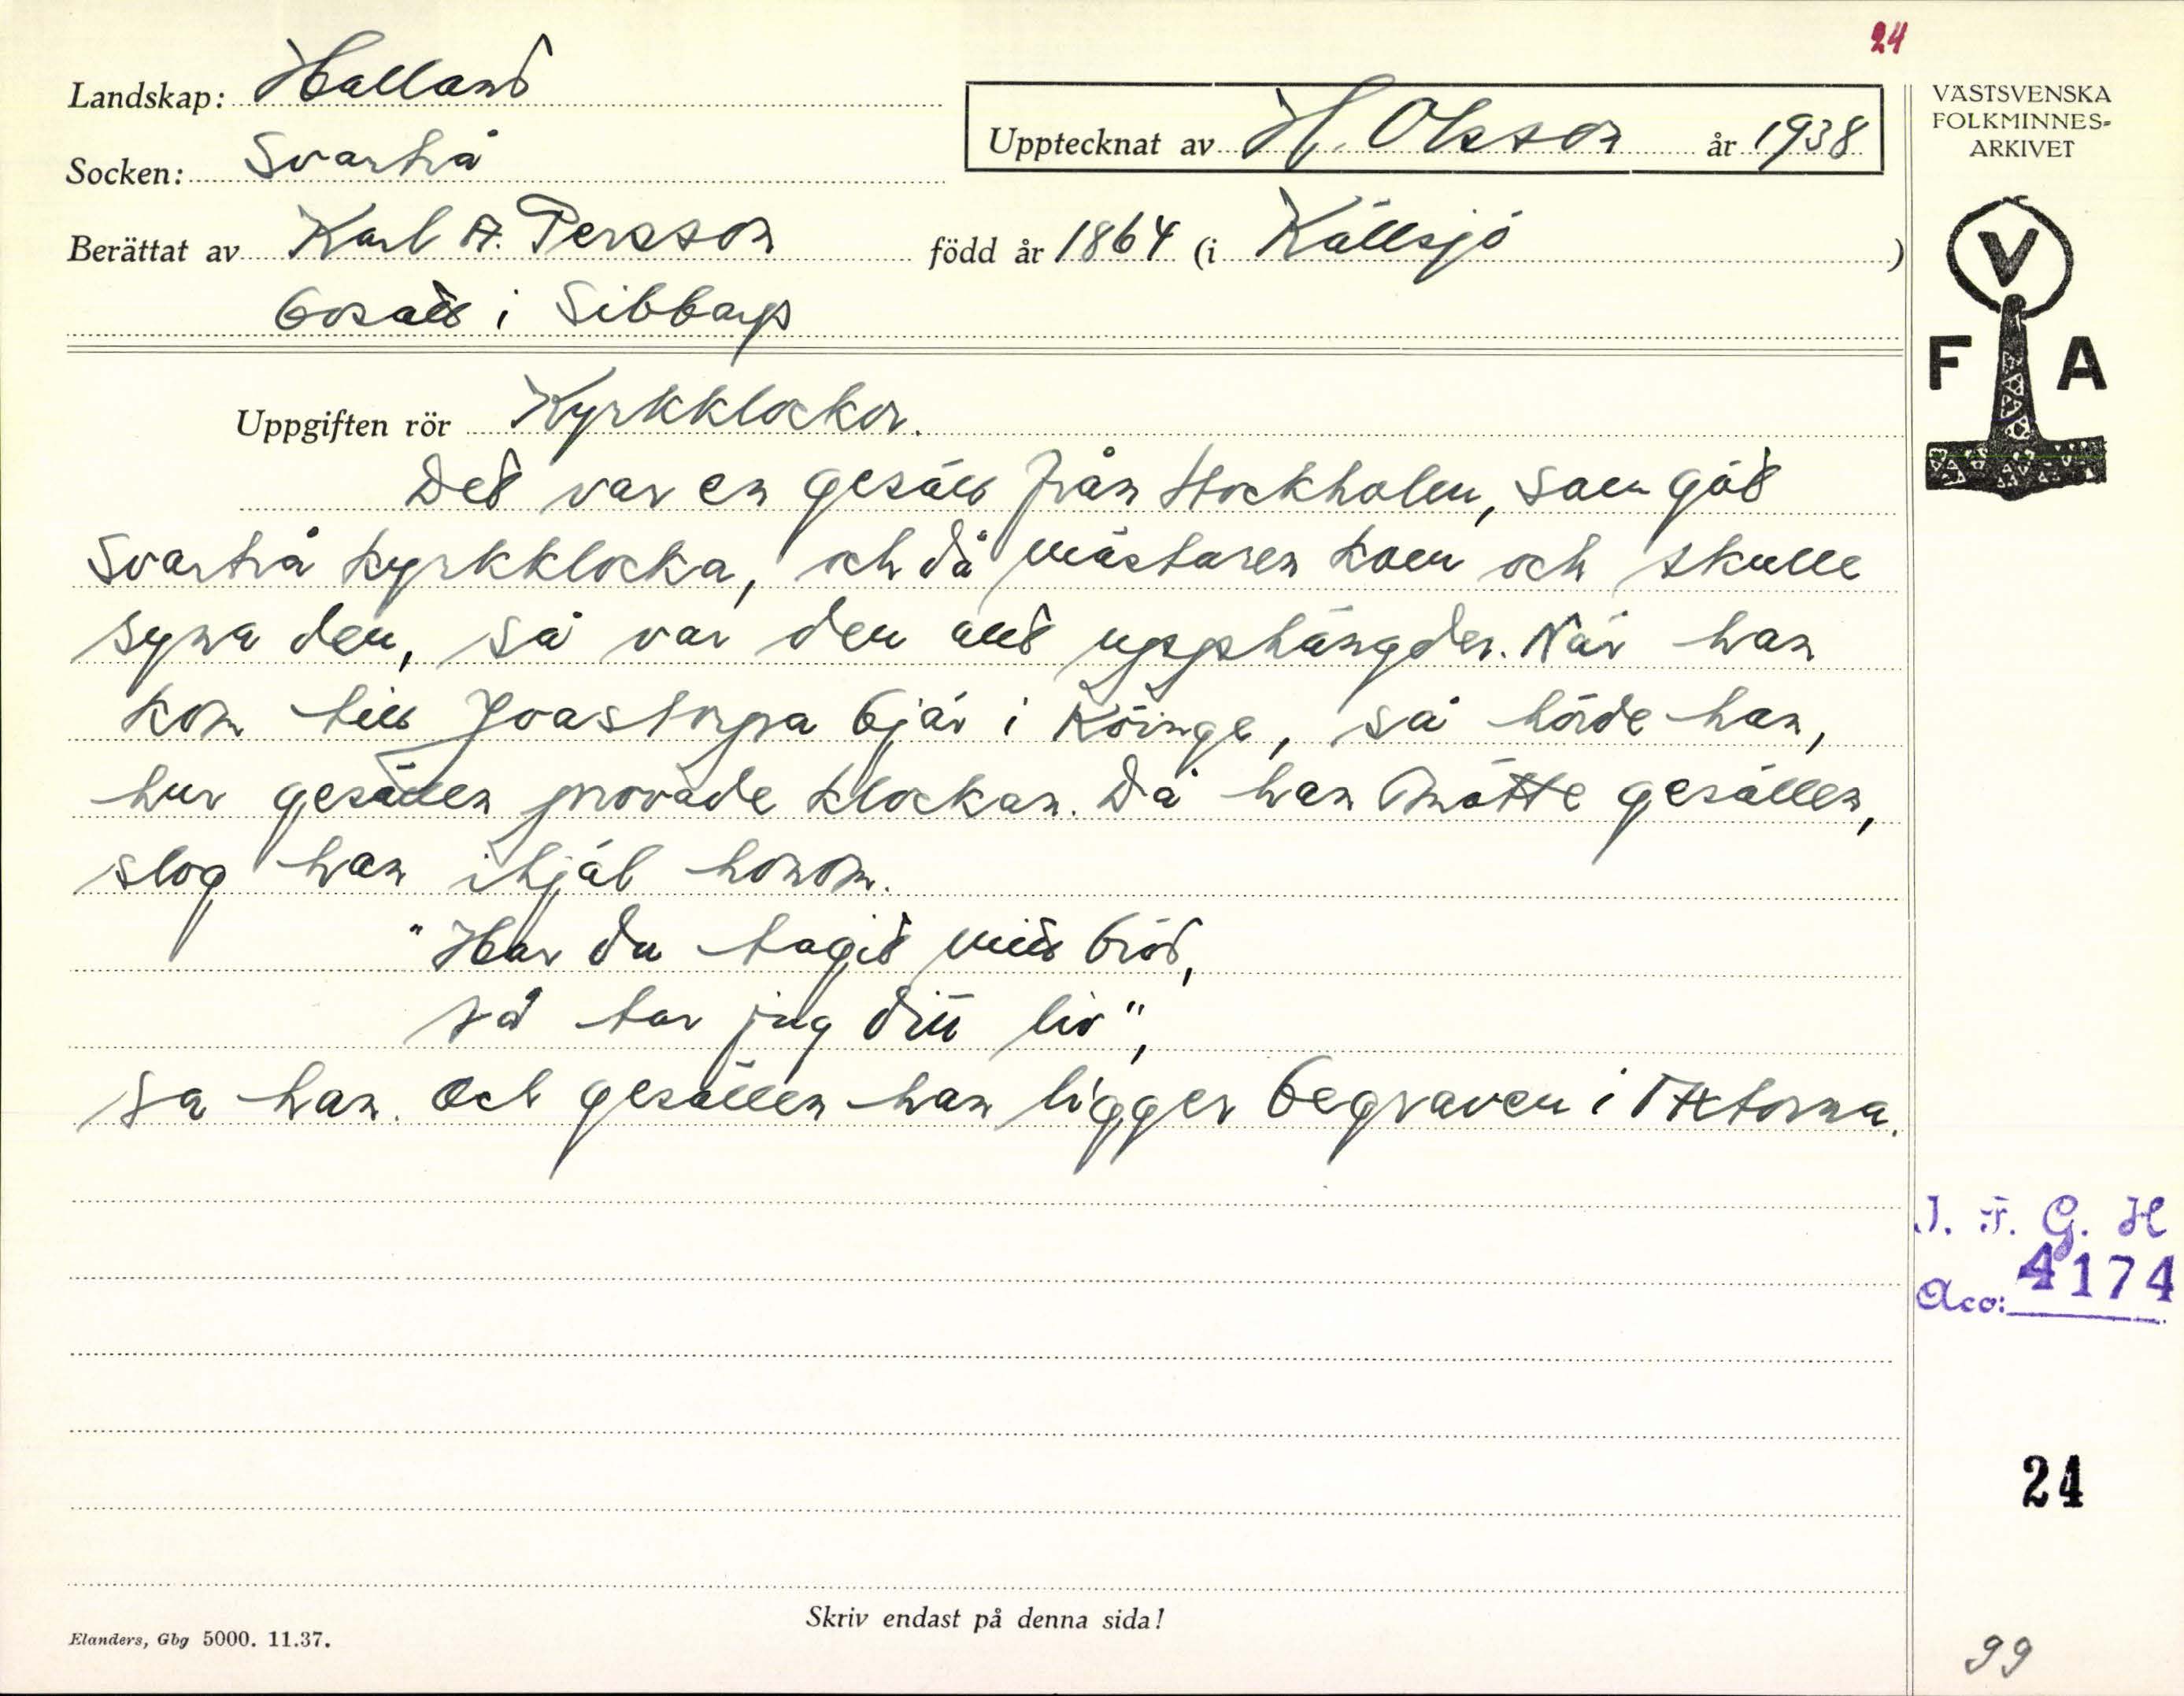 24
Landskap: Halland
Upptecknat av H. Olsson år 1938
Socken: Svartrå
Berättat av Karl A. Persson född år 1864 (i Källsjö)
bosatt i Sibbarp
VÄSTSVENSKA
FOLKMINNES-
ARKIVET
V
F A
Uppgiften rör Kyrkklockor.
Det var en gesäll från Stockholm, som göt
Svartrå kyrkklocka, och då mästaren kom och skulle
syna den, så var den allt upphängder. När han
kom till Joastorpa bjär i Köinge, så hörde han,
hur gesällen provade klockan. Då han mötte gesällen,
slog han ihjäl honom.
"Har du tagit mitt bröd,
så tar jag ditt liv",
sa han. Och gesällen han ligger begraven i
I. F. G. H
Acc: 4174
24
Skriv endast på denna sida!
Elanders, Gbg 5000. 11.37.
99